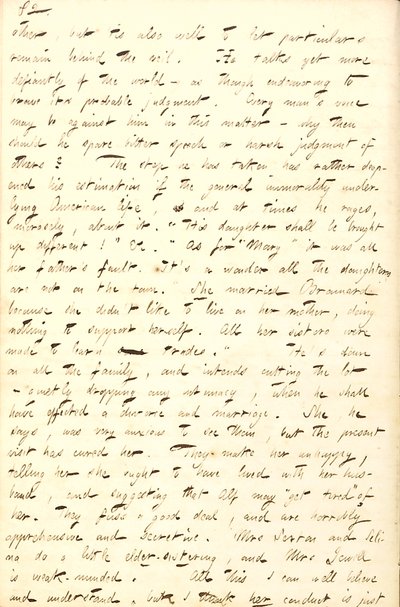 82.
other, but 'tis also well to let particulars
remain behind the veil. He talks yet more
defiantly of the world — as though endeavoring to
brave its probable judgment. Every man's voice
may be against him in this matter — why then
should he spare bitter speech or harsh judgment of
others? The step he has taken has rather deep-
ened his estimation of the general immorality under-
lying American life, and at times he rages,
morosely, about it. "His daughter shall be brought
up different!" &c. "As for "Mary" it was all
her father's fault. It's a wonder all the daughters
are not on the town." She married Brainard
because she didn't like to live on her mother, doing
nothing to support herself. All her sisters were
made to learn trades." He's down
on all the family, and intends cutting the lot
— quietly dropping any intimacy, when he shall
have effected a divorce and marriage. She, he
says, was very anxious to see them, but the present
visit has cured her. They make her unhappy,
telling her she ought to have lived with her hus-
band, and suggesting that Alf may get tired of
her. They fuss a good deal, and are horribly
apprehensive and secretive. Mrs
do a little elder-sistering, and Mrs Jewell
is weak-minded. All this I can well believe
and understand, but I think her conduct is just